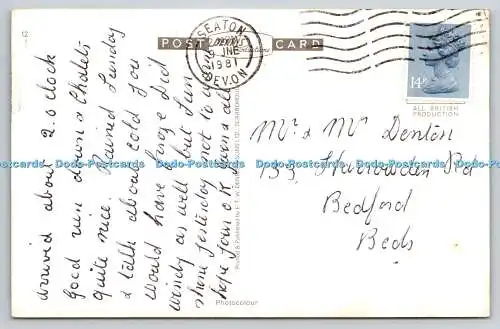 12
POST CARD
SEATON
9 JNE
1981
DEVON
14P
ALL BRITISH
PRODUCTION
arrived about 2 o clock
good run down & Chalets
quite nice. Rained Sunday
& talk about cold you
would have froze Did
windy as well but Sun
shone yesterday not to warm
hope Tom O.K. you all
Mr & Mrs Denton
133 Rd
Bedford
Beds
Dodo-Postcards Dodo-Postcards Dodo-Postcards Dodo-Postcards Dodo-Postcards Dodo-Postcards
Photocolour